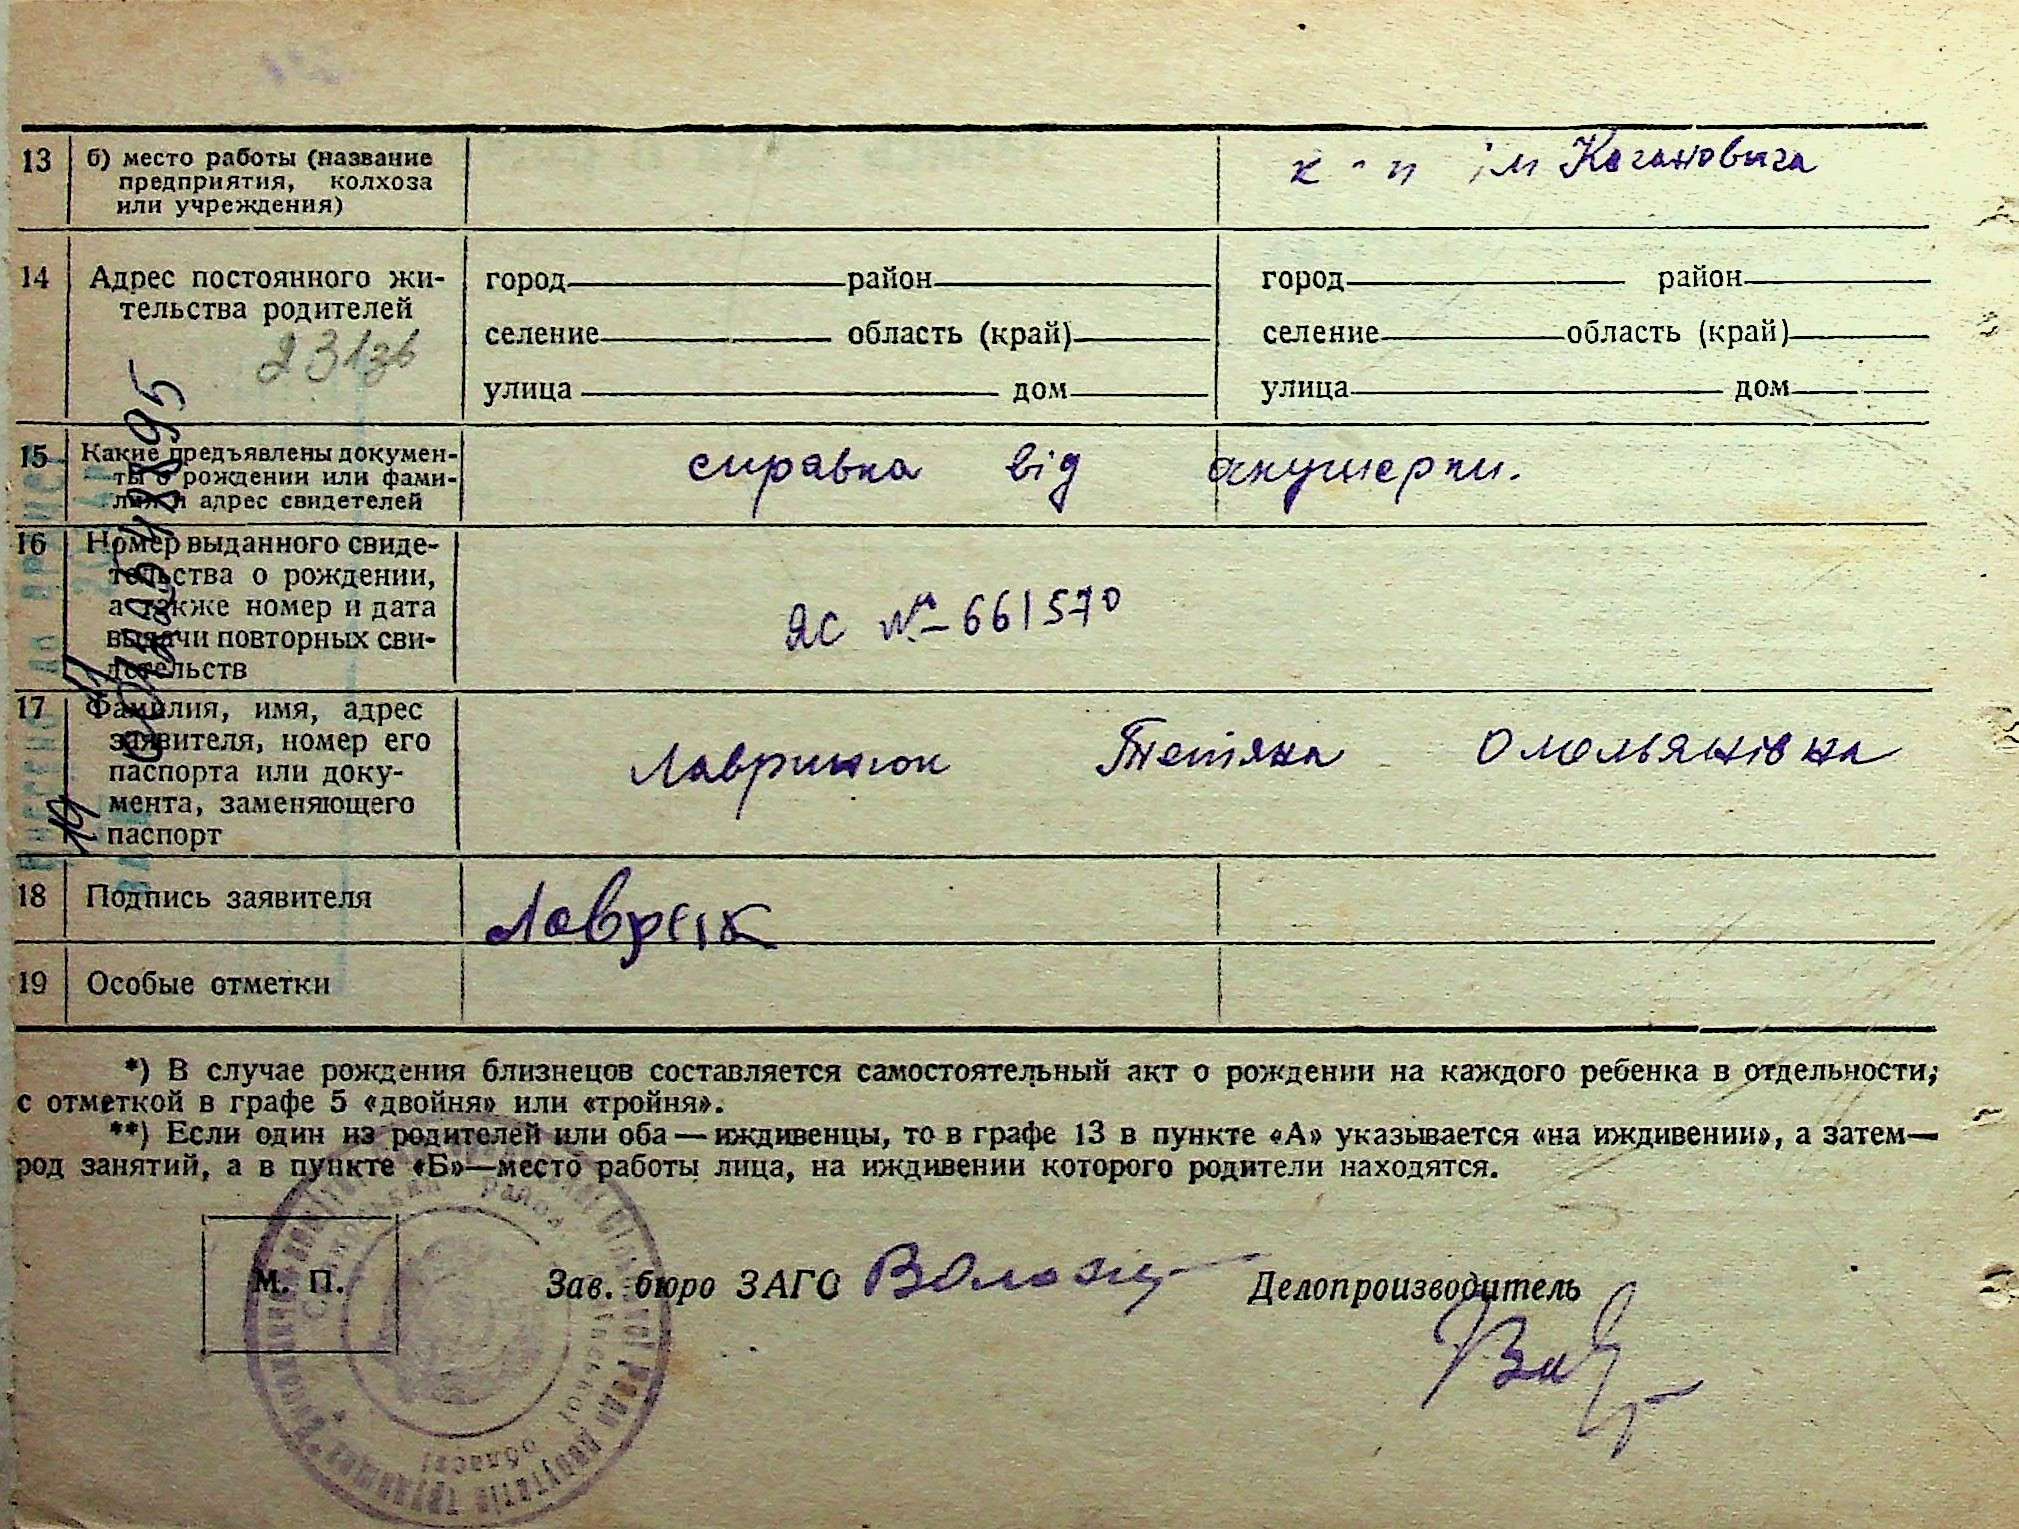 13 б) место работы (название
предприятия, колхоза
или учреждения)
к-п ім Кагановича
14 Адрес постоянного жи-
тельства родителей
город район
селение область (край)
улица дом
город район
селение область (край)
улица дом
15 Какие предъявлены докумен-
ты о рождении или фами-
лия и адрес свидетелей
справка від акушерки.
16 Номер выданного свиде-
тельства о рождении,
а также номер и дата
выдачи повторных сви-
детельств
ЯС № 661570
17 Фамилия, имя, адрес
заявителя, номер его
паспорта или доку-
мента, заменяющего
паспорт
Лавринюк Тетяна Омельянівна
18 Подпись заявителя
19 Особые отметки
*) В случае рождения близнецов составляется самостоятельный акт о рождении на каждого ребенка в отдельности,
с отметкой в графе 5 «двойня» или «тройня».
**) Если один из родителей или оба — иждивенцы, то в графе 13 в пункте «А» указывается «на иждивении», а затем—
род занятий, а в пункте «Б»—место работы лица, на иждивении которого родители находятся.
М. П.
Зав. бюро ЗАГС
Делопроизводитель